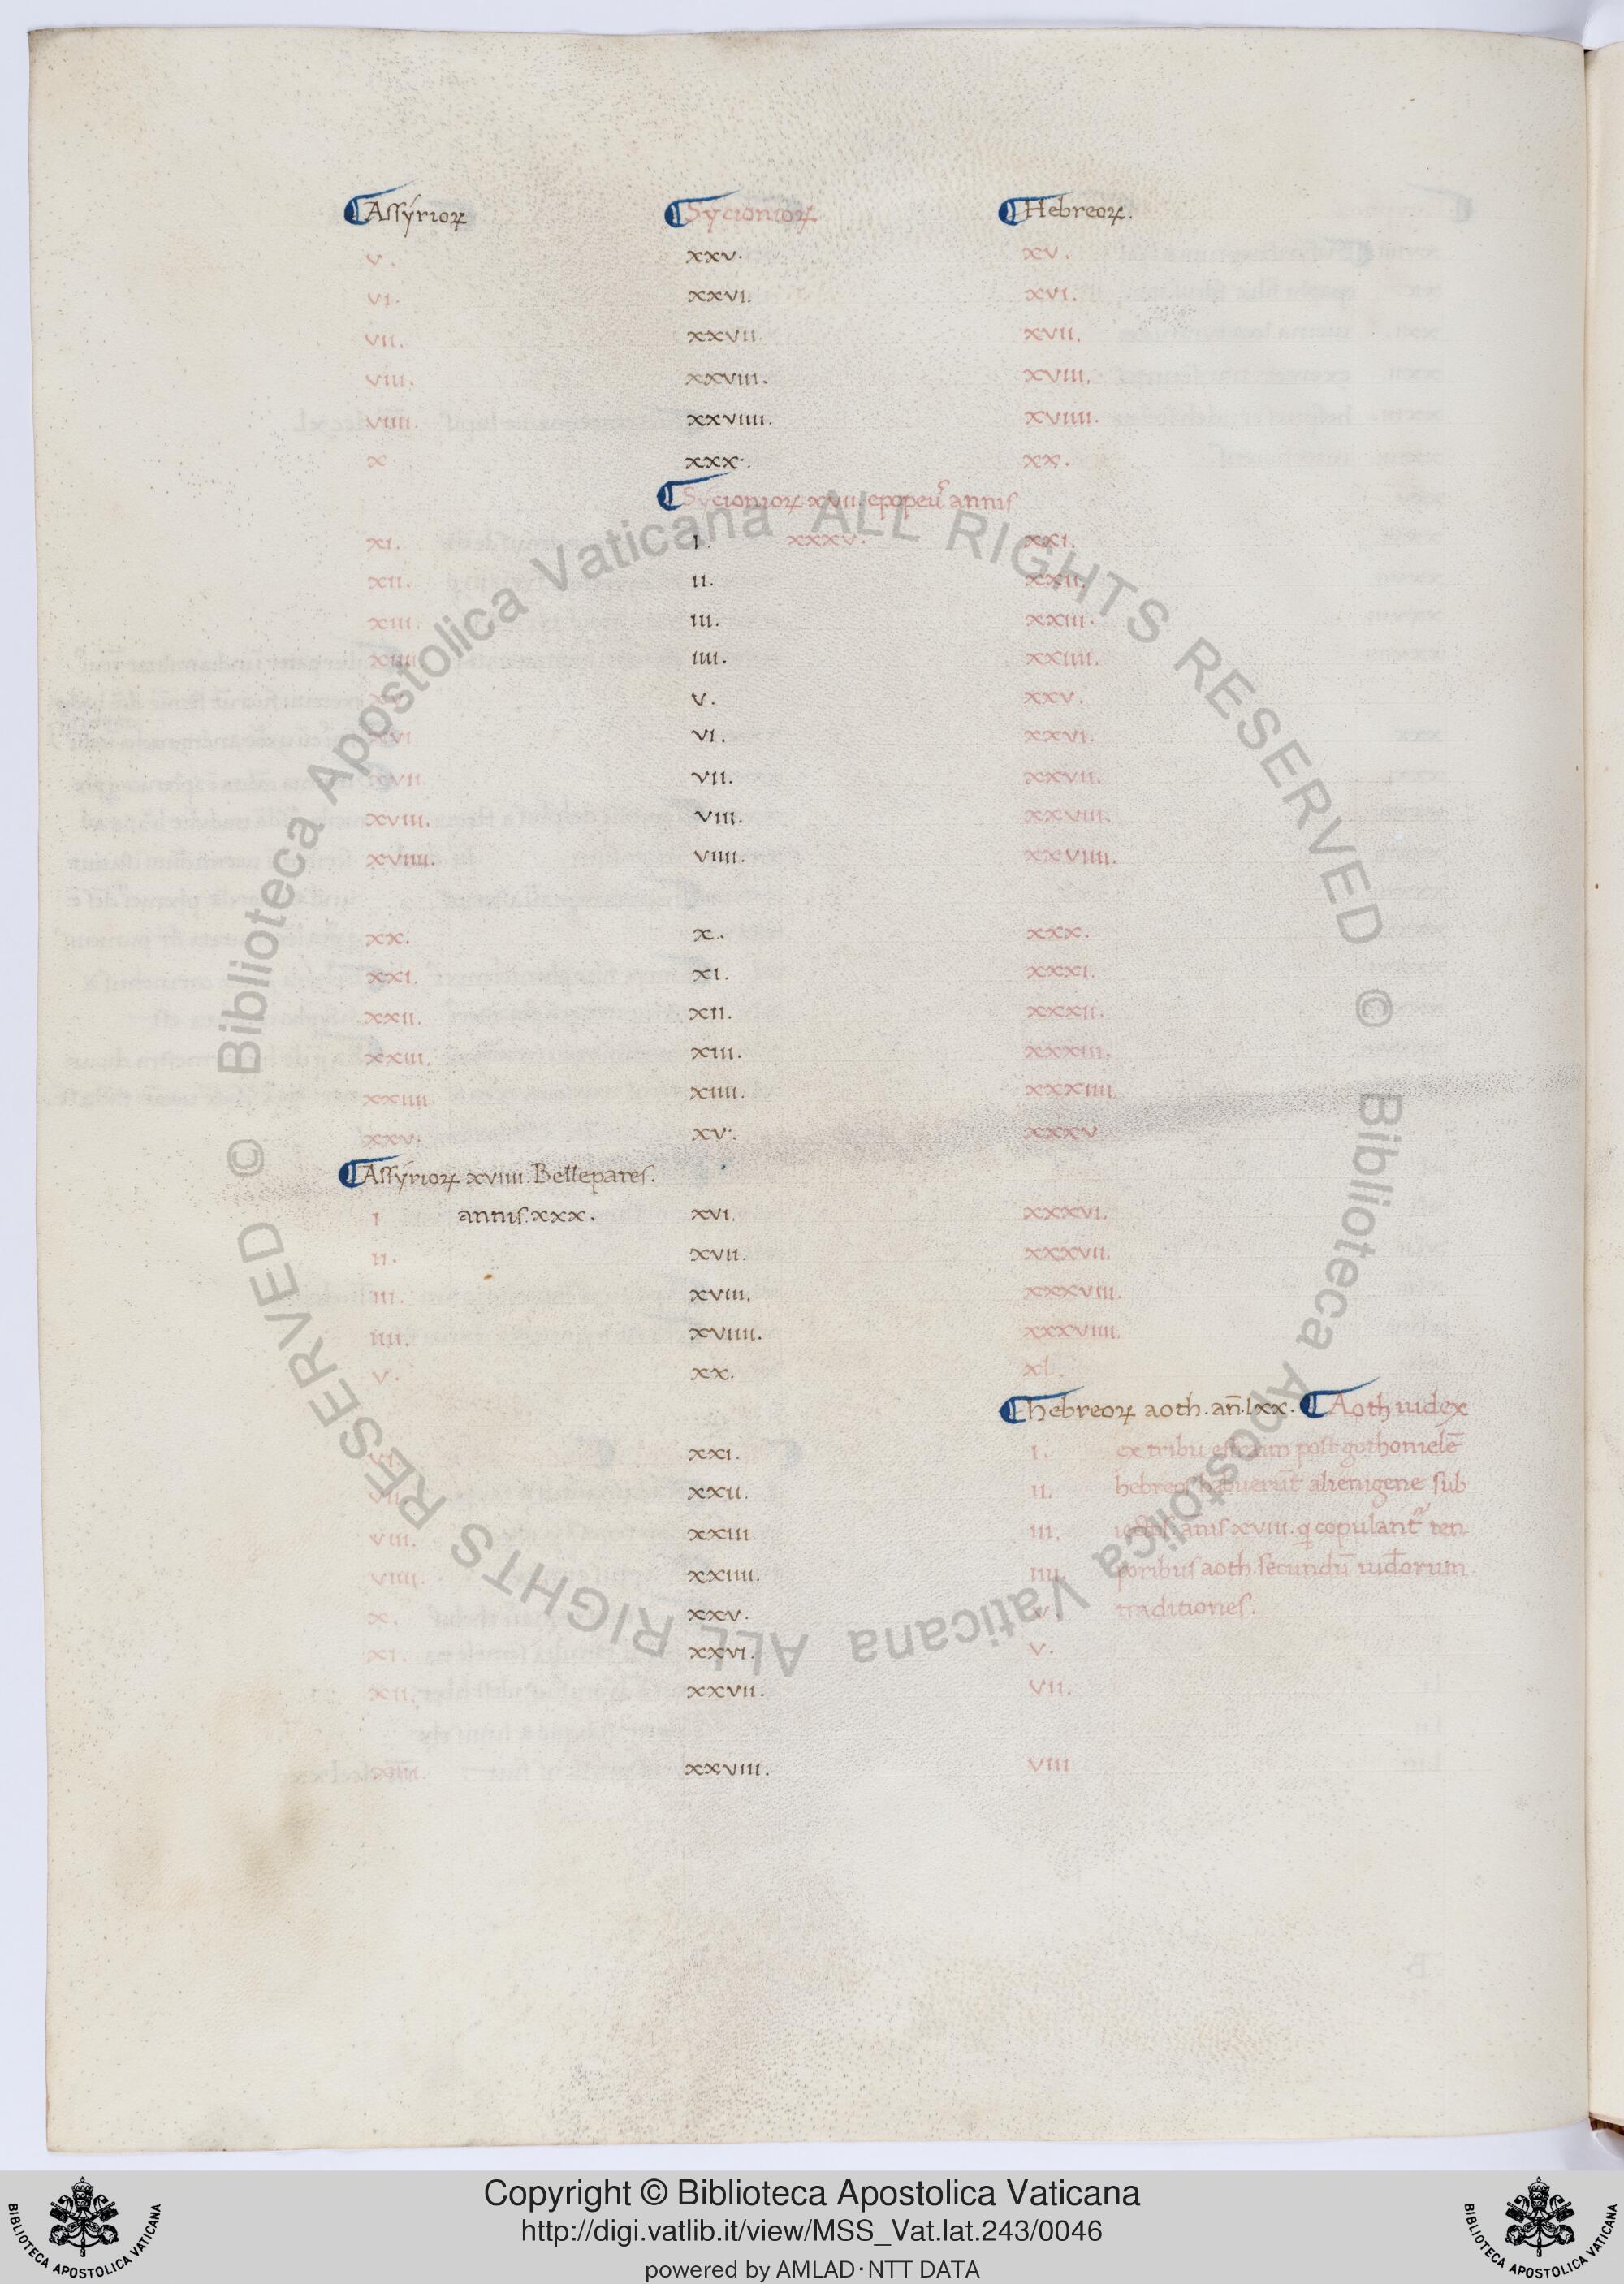 Assyrioꝝ Sycionioꝝ Hebreoꝝ.
v. xxv. xv.
vi. xxvi. xvi.
vii. xxvii. xvii.
viii. xxviii. xviii.
viiii. xxviiii. xviiii.
x xxx. xx.
Sycionioꝝ xvii. epopeus annis
xi. i. xxxv. xxi.
xii. ii. xxii.
xiii. iii. xxiii.
xiiii iiii. xxiiii.
xv v. xxv.
xvi vi. xxvi.
xvii vii. xxvii.
xviii. viii. xxviii.
xviiii. viiii. xxviiii.
xx. x. xxx.
xxi. xi. xxxi.
xxii. xii. xxxii.
xxiii. xiii. xxxiii.
xxiiii. xiiii. xxxiiii.
xxv. xv. xxxv
Assyrioꝝ xviiii. Bellepares.
i annis. xxx. xvi. xxxvi.
ii. xvii. xxxvii.
iii. xviii. xxxviii.
iiii. xviiii. xxxviiii.
v. xx. xl.
hebreoꝝ aoth. an̄. lxx. Aoth iudex
vi. xxi. i. ex tribu post gothonielē
vii. xxii. ii. hebreos alienigene sub
viii. xxiii. iii. anis xviii. q copulant ten
viiii. xxiiii. iiii. poribus aoth secundū iudeorum
x. xxv. v. traditiones.
xi. xxvi. v.
xii. xxvii. vii.
xxviii. viii
© Biblioteca Apostolica Vaticana ALL RIGHTS RESERVED © Biblioteca Apostolica Vaticana ALL RIGHTS RESERVED
Copyright © Biblioteca Apostolica Vaticana
http://digi.vatlib.it/view/MSS_Vat.lat.243/0046
powered by AMLAD·NTT DATA
BIBLIOTECA APOSTOLICA VATICANA
BIBLIOTECA APOSTOLICA VATICANA